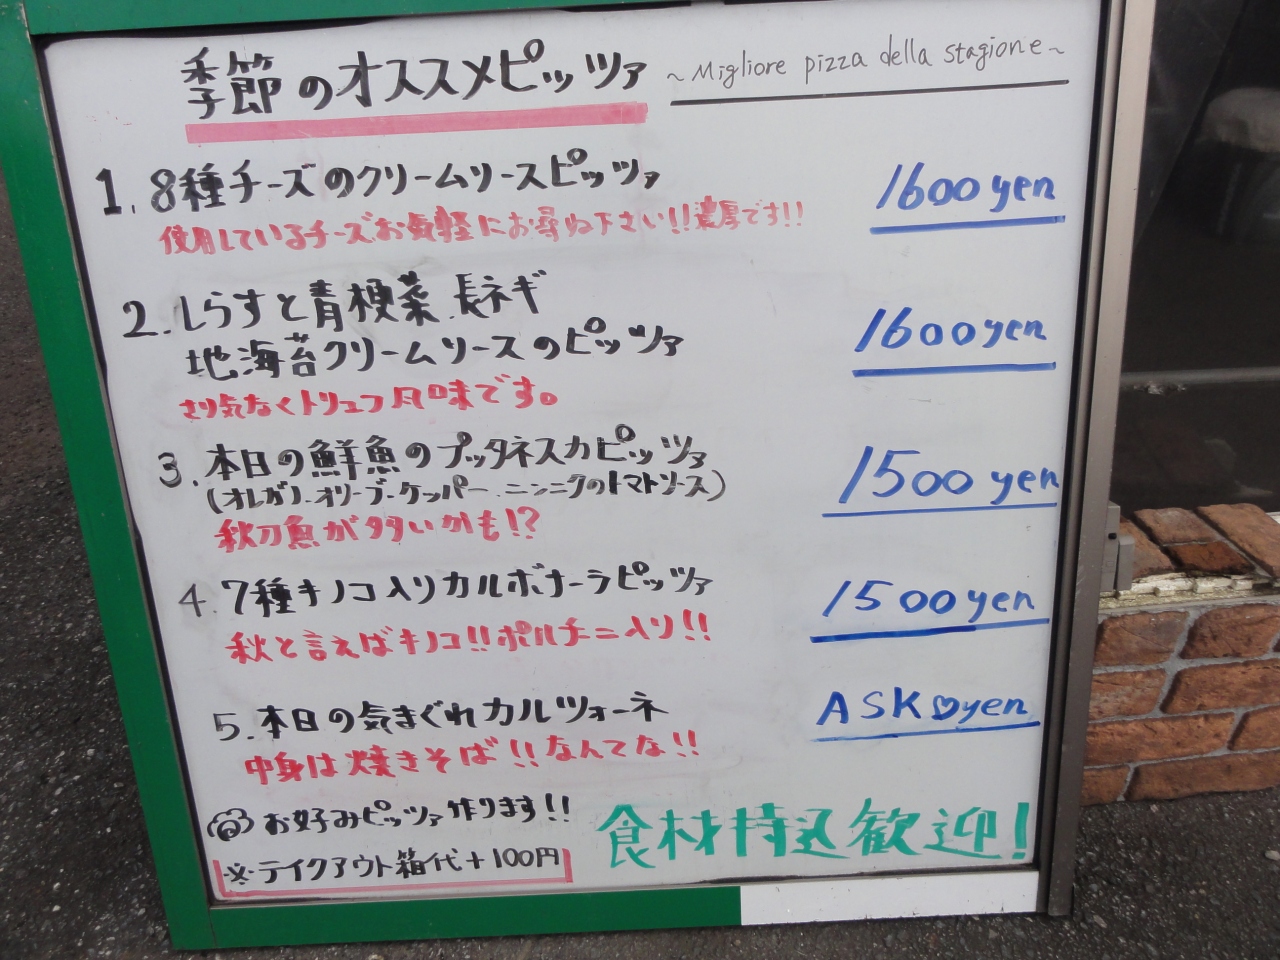 季節のオススメピッツァ ~Migliore pizza della stagione~
1. 8種チーズのクリームソースピッツァ 1600yen
使用しているチーズお気軽にお尋ね下さい!!濃厚です!!
2. しらすと青梗菜、長ネギ
地海苔クリームソースのピッツァ 1600yen
さり気なくトリュフ風味です。
3. 本日の鮮魚のプッタネスカピッツァ 1500yen
(オレガノ、オリーブ、ケッパー、ニンニクのトマトソース)
秋刀魚が多いかも!?
4. 7種キノコ入りカルボナーラピッツァ 1500yen
秋と言えばキノコ!!ポルチーニ入り!!
5. 本日の気まぐれカルツォーネ ASK♡yen
中身は焼きそば!!なんてな!!
お好みピッツァ作ります!!
※テイクアウト箱代+100円
食材持込歓迎!